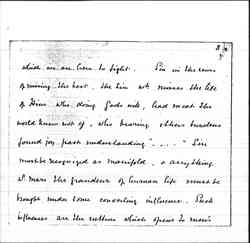 which we are here to fight. Sin in the sense
of missing the best. The sin wh misses the life
of Him who doing God's will, had meat the
world knew not of, who bearing others burdens
found joy past understanding" .... " Sin
must be recognised as manifold, & anything
wh mars the grandeur of human life must be
brought under some converting influence. Such
influences are the culture which opens to man's